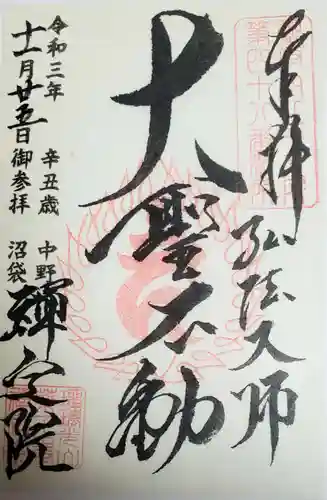 奉拝
弘法大師
大聖不動
令和三年 辛丑歳 中野
十一月廿五日御参拝 沼袋
禅定院